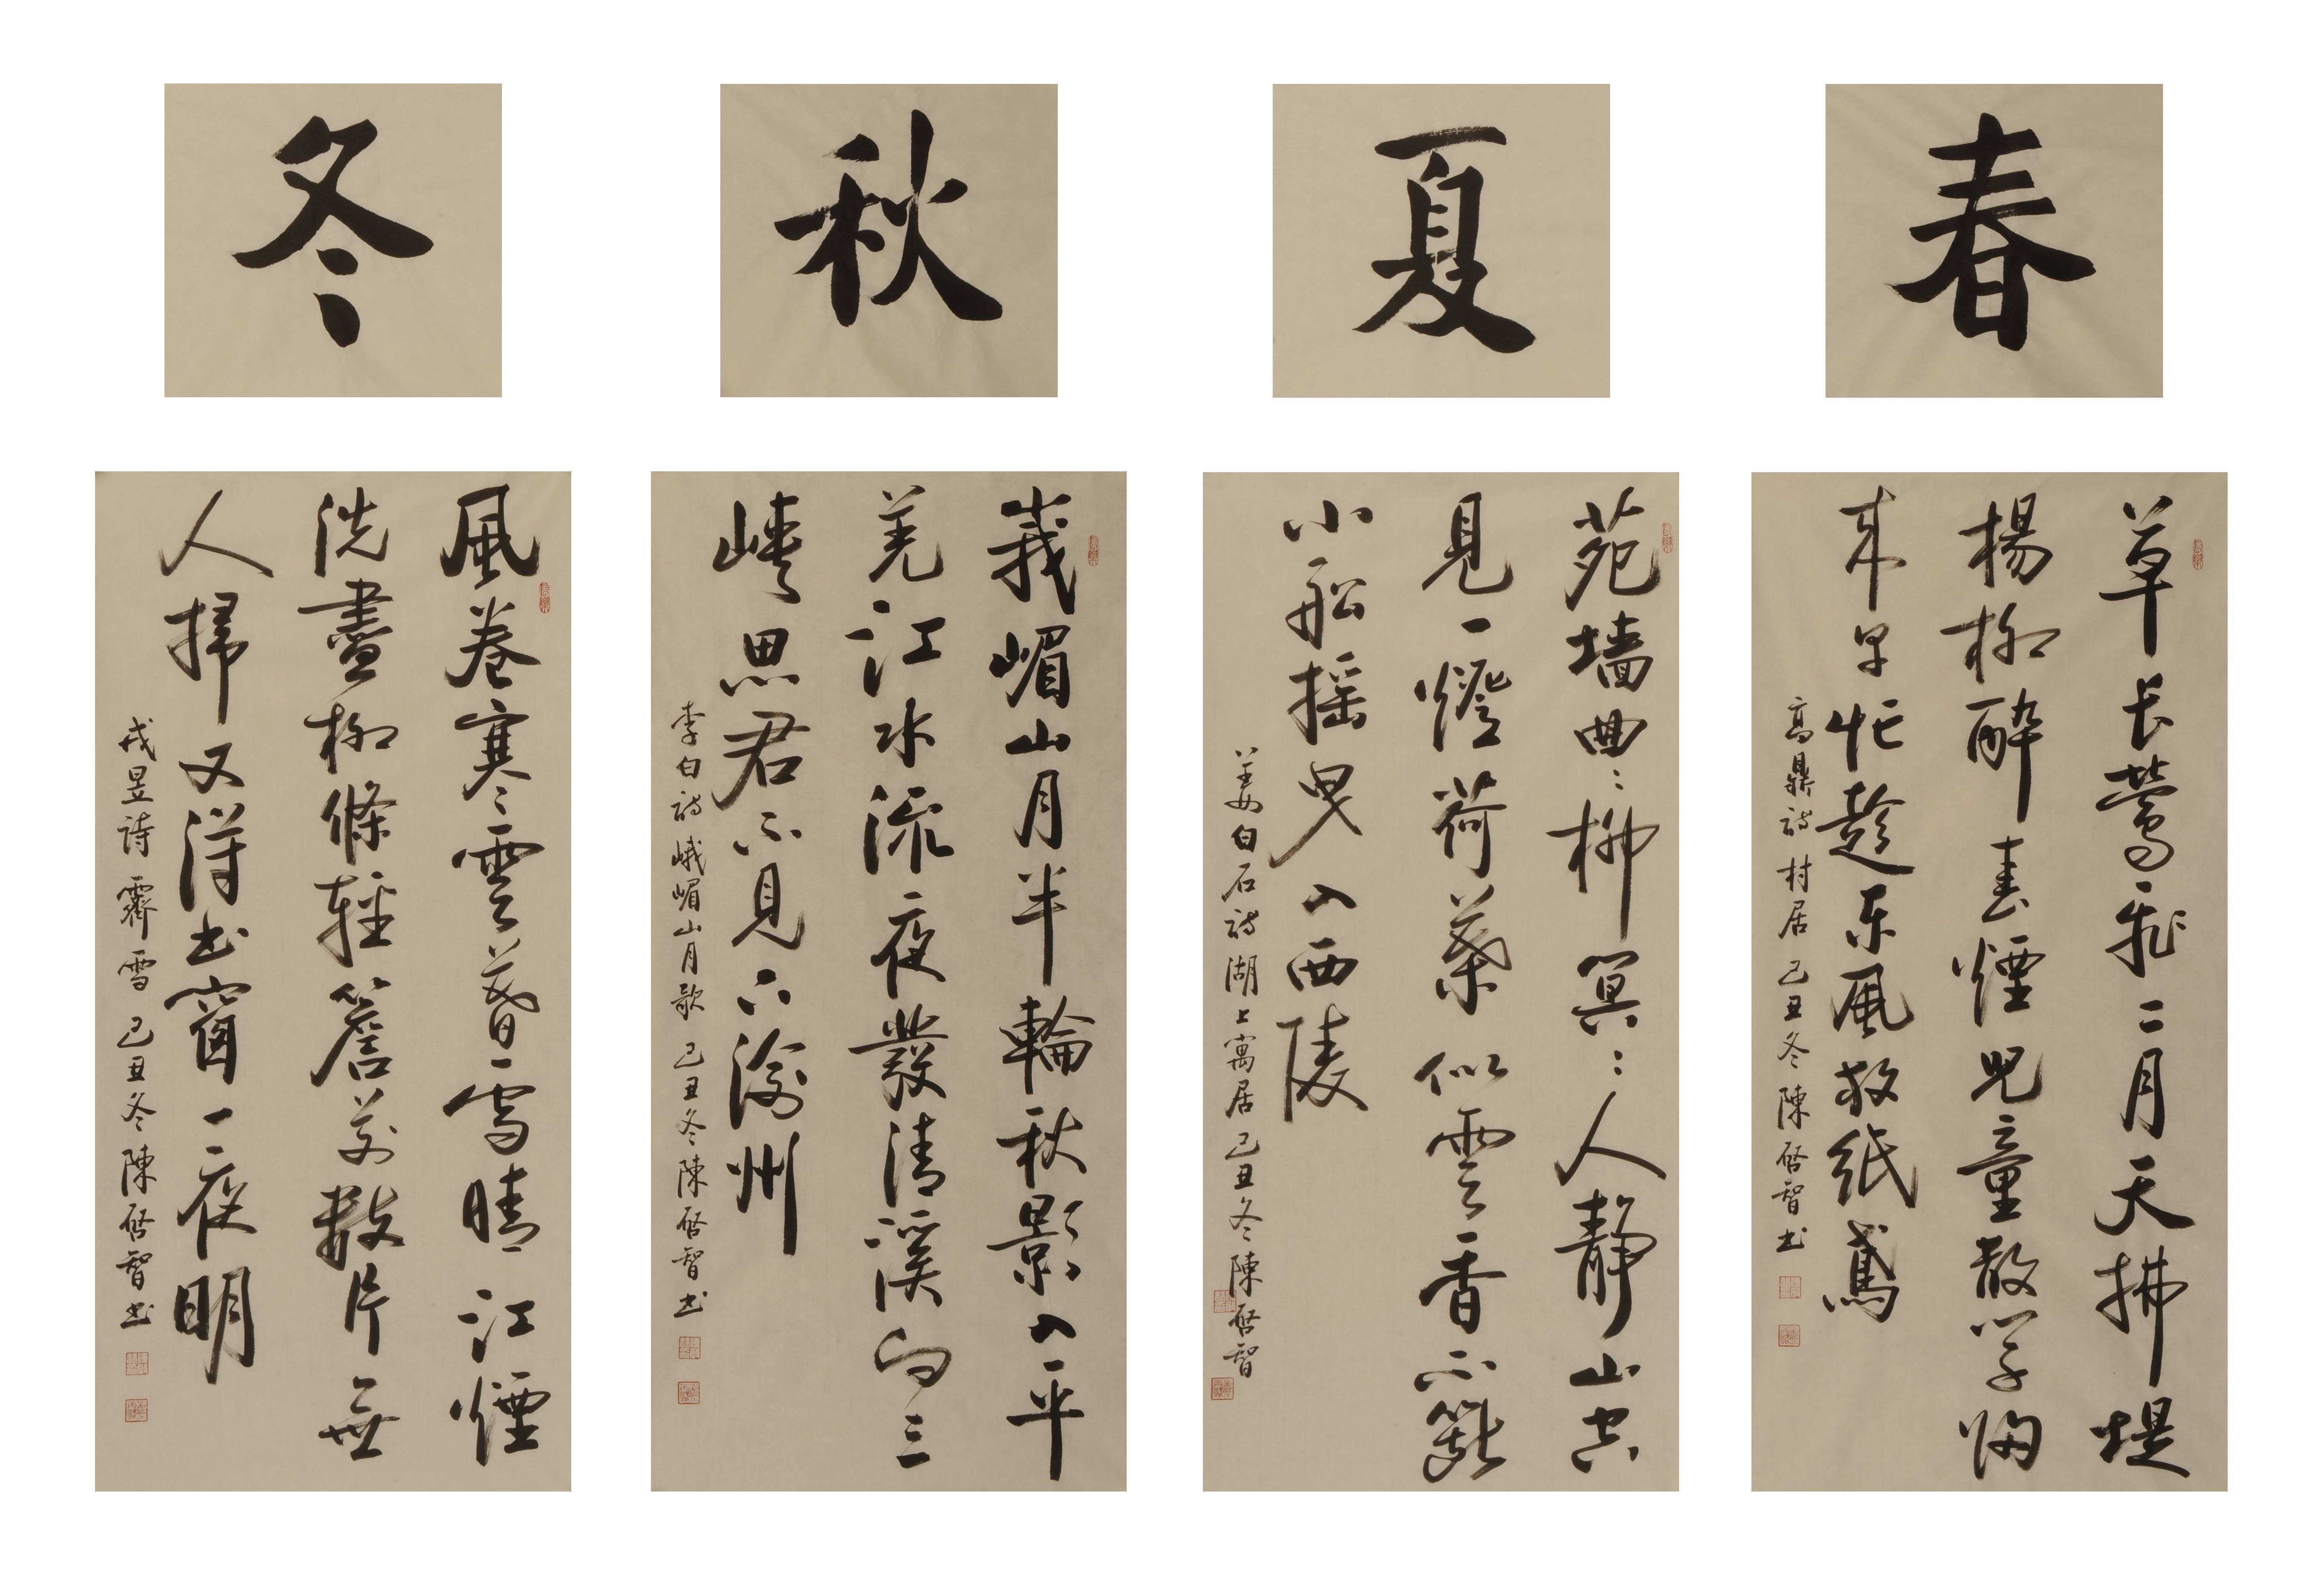 春
草長鶯飛二月天拂堤
楊柳醉春煙兒童散學歸
來早忙趁東風放紙鳶
高鼎詩 村居 己丑冬 陳啓智書
夏
苑墙曲〻柳冥〻人靜山空
見一燈荷葉似雲香不斷
小船搖曳入西陵
姜白石詩 湖上寓居 己丑冬 陳啓智
秋
峩嵋山月半輪秋影入平
羌江水流夜發清溪向三
峽思君不見下渝州
李白詩 峨嵋山月歌 己丑冬 陳啓智書
冬
風卷寒雲暮雪晴江煙
洗盡柳條輕簷前數片無
人掃又得書窗一夜明
戎昱詩 霽雪 己丑冬 陳啓智書